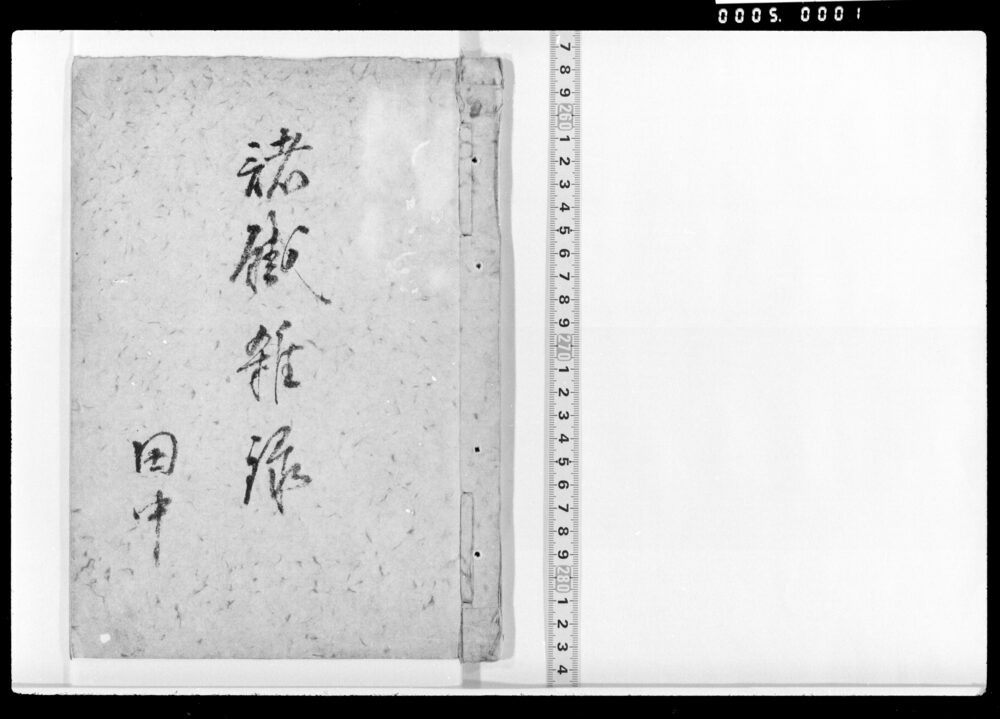 0005. 0001
諸職雑録
田中
7 8 9 260 1 2 3 4 5 6 7 8 9 270 1 2 3 4 5 6 7 8 9 280 1 2 3 4